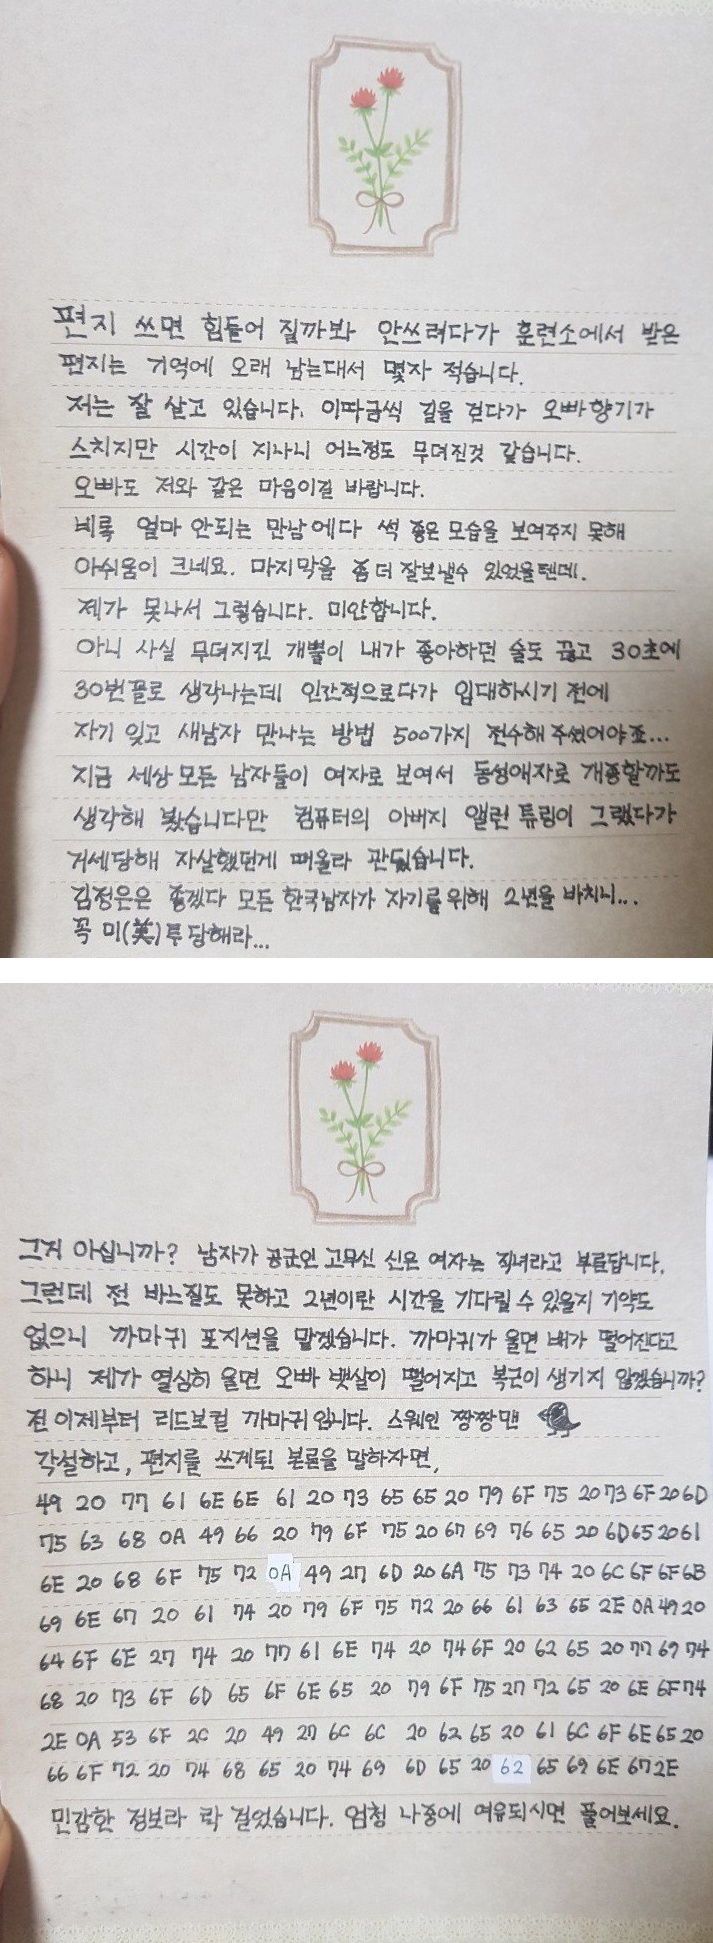 편지 쓰면 힘들어 질까봐 안쓰려다가 훈련소에서 받은
편지는 기억에 오래 남는대서 몇자 적습니다.
저는 잘 살고 있습니다. 이따금씩 길을 걷다가 오빠향기가
스치지만 시간이 지나니 어느정도 무뎌진것 같습니다.
오빠도 저와 같은 마음이길 바랍니다.
비록 얼마 안되는 만남에다 썩 좋은 모습을 보여주지 못해
아쉬움이 크네요. 마지막을 좀 더 잘보낼수 있었을텐데.
제가 못나서 그렇습니다. 미안합니다.
아니 사실 무뎌지긴 개뿔이 내가 좋아하던 술도 끊고 30초에
30번꼴로 생각나는데 인간적으로다가 입대하시기 전에
자기 잊고 새남자 만나는 방법 500가지 전수해 주셨어야죠...
지금 세상 모든 남자들이 여자로 보여서 동성애자로 개종할까도
생각해 봤습니다만 컴퓨터의 아버지 앨런 튜링이 그랬다가
거세당해 자살했던게 떠올라 관뒀습니다.
김정은은 좋겠다 모든 한국남자가 자기를 위해 2년을 바치니...
꼭 미(英)투 당해라...
그거 아십니까? 남자가 공군인 고무신 신은 여자는 직녀라고 부른답니다.
그런데 전 바느질도 못하고 2년이란 시간을 기다릴 수 있을지 기약도
없으니 까마귀 포지션을 맡겠습니다. 까마귀가 울면 배가 떨어진다고
하니 제가 열심히 울면 오빠 뱃살이 떨어지고 복근이 생기지 않겠습니까?
전 이제부터 리드보컬 까마귀입니다. 스웨인 짱짱맨
각설하고, 편지를 쓰게된 본론을 말하자면,
49 20 77 61 6E 6E 61 20 73 65 65 20 79 6F 75 20 73 6F 20 6D
75 63 68 0A 49 66 20 79 6F 75 20 67 69 76 65 20 6D 65 20 61
6E 20 68 6F 75 72 0A 49 27 6D 20 6A 75 73 74 20 6C 6F 6F 6B
69 6E 67 20 61 74 20 79 6F 75 72 20 66 61 63 65 2E 0A 49 20
64 6F 6E 27 74 20 77 61 6E 74 20 74 6F 20 62 65 20 77 69 74
68 20 73 6F 6D 65 6F 6E 65 20 79 6F 75 27 72 65 20 6E 6F 74
2E 0A 53 6F 2C 20 49 27 6C 6C 20 62 65 20 61 6C 6F 6E 65 20
66 6F 72 20 74 68 65 20 74 69 6D 65 20 62 65 69 6E 67 2E
민감한 정보라 락 걸었습니다. 엄청 나중에 여유되시면 풀어보세요.